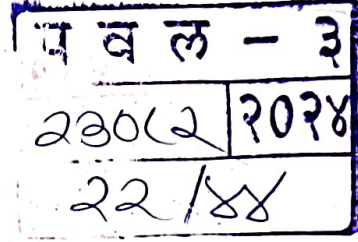 पवल - ३
२३०८२ २०२४
२२/४४